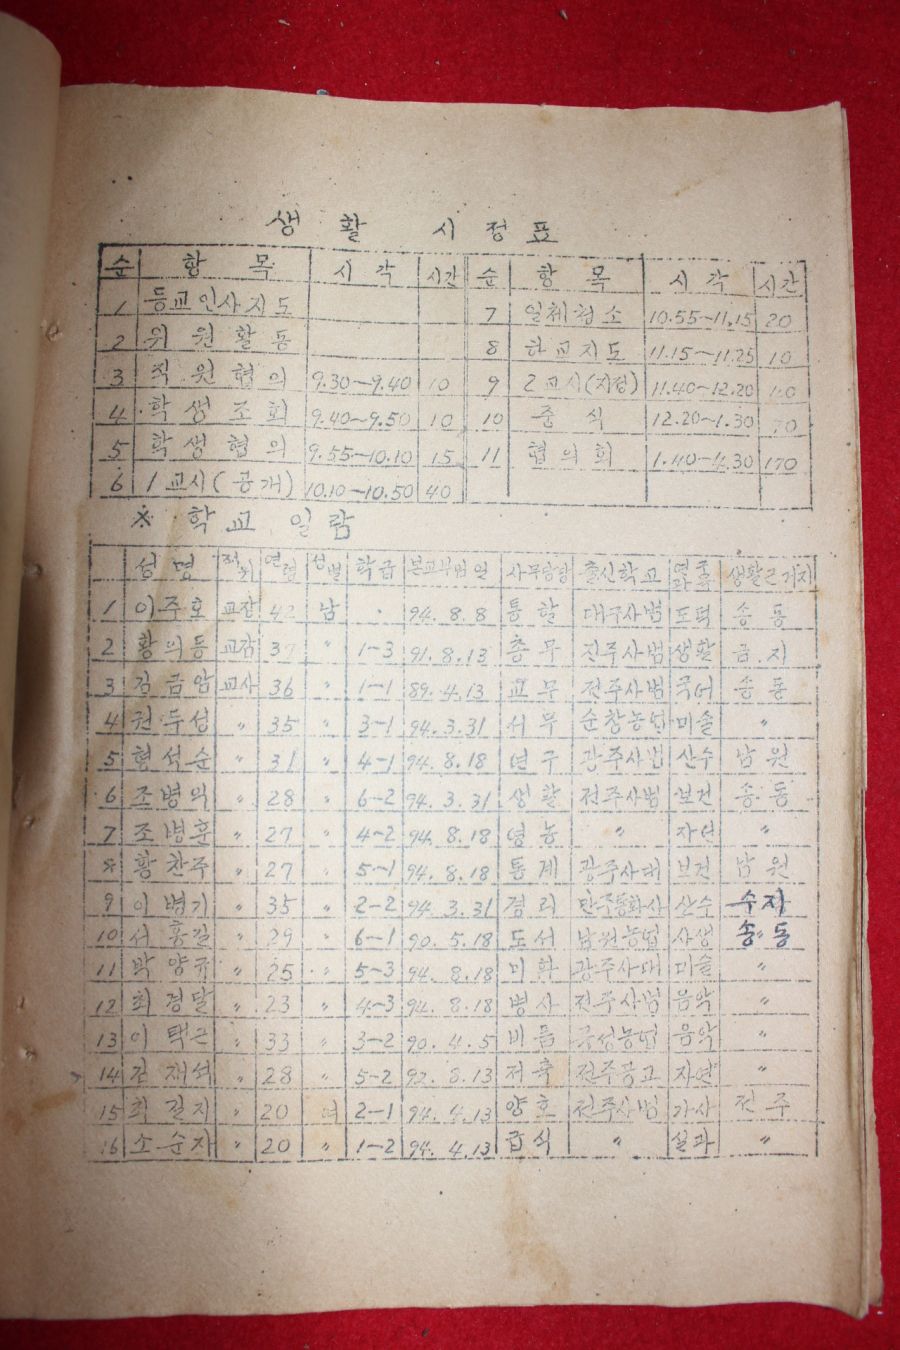 생 활 시 정 표
순 항 목 시 각 시간 순 항 목 시 각 시간
1 등교인사지도 7 일체청소 10.55~11.15 20
2 위 원 활 동 8 하교지도 11.15~11.25 10
3 직 원 협 의 9.30~9.40 10 9 2교시(지정) 11.40~12.20
4 학 생 조 회 9.40~9.50 10 10 중 식 12.20~1.30 70
5 학 생 협 의 9.55~10.10 15 11 협 의 회 1.40~4.30 170
6 1교시(공개) 10.10~10.50 40
※ 학 교 일 람
성 명 직위 연령 성별 학급 본교부임일 사무담당 출신학교 생활근거지
1 이주호 교장 42 남 94.8.8 통 할 대구사범 도덕 송 동
2 황의동 교감 37 〃 1-3 91.8.13 총 무 전주사범 생활 금 지
3 김금암 교사 36 〃 1-1 89.4.13 교 무 전주사범 국어 송 동
4 권두성 〃 35 〃 3-1 94.3.31 서 무 순창농림 미술 〃
5 형석순 〃 31 〃 4-1 94.8.18 연 구 광주사범 산수 남 원
6 조병익 〃 28 〃 6-2 94.3.31 생 활 전주사범 보건 송 동
7 조병훈 〃 27 〃 4-2 94.8.18 영 농 〃 자연 〃
* 황찬주 〃 27 〃 5-1 94.8.18 통 계 광주사대 보건 남 원
9 이병기 〃 35 〃 2-2 94.3.31 경 리 산수 수지
10 서홍길 〃 29 〃 6-1 90.5.18 도서 남원농업 사생 송 동
11 박양규 〃 25 〃 5-3 94.8.18 미 화 광주사대 미술 〃
12 최경달 〃 23 〃 4-3 94.8.18 병 사 전주사범 음악 〃
13 이택근 〃 33 〃 3-2 90.4.5 비 품 음악 〃
14 김재석 〃 28 〃 5-2 92.8.13 저 축 전주공고 자연 〃
15 최길자 〃 20 여 2-1 94.4.13 양 호 전주사범 가사 전 주
16 소순자 〃 20 〃 1-2 94.4.13 급 식 〃 실과 〃